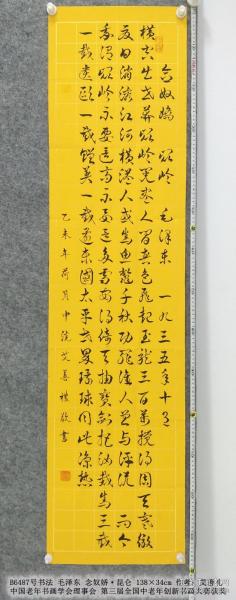 念奴娇 昆仑 毛泽东 一九三五年十月
横空出世莽昆仑阅尽人间春色飞起玉龙三百万搅得周天寒彻
夏日消溶江河横溢人或为鱼鳖千秋功罪谁人曾与评说 而今
我谓昆仑不要这高不要这多雪安得倚天抽宝剑把汝裁为三截
一截遗欧一截赠美一截还东国太平世界环球同此凉热
乙未年荷月中浣 艾善礼敬书
B6487号书法 毛泽东 念奴娇·昆仑 138×34cm 作者:艾善礼
中国老年书画学会理事会 第三届全国中老年创新书画大赛获奖